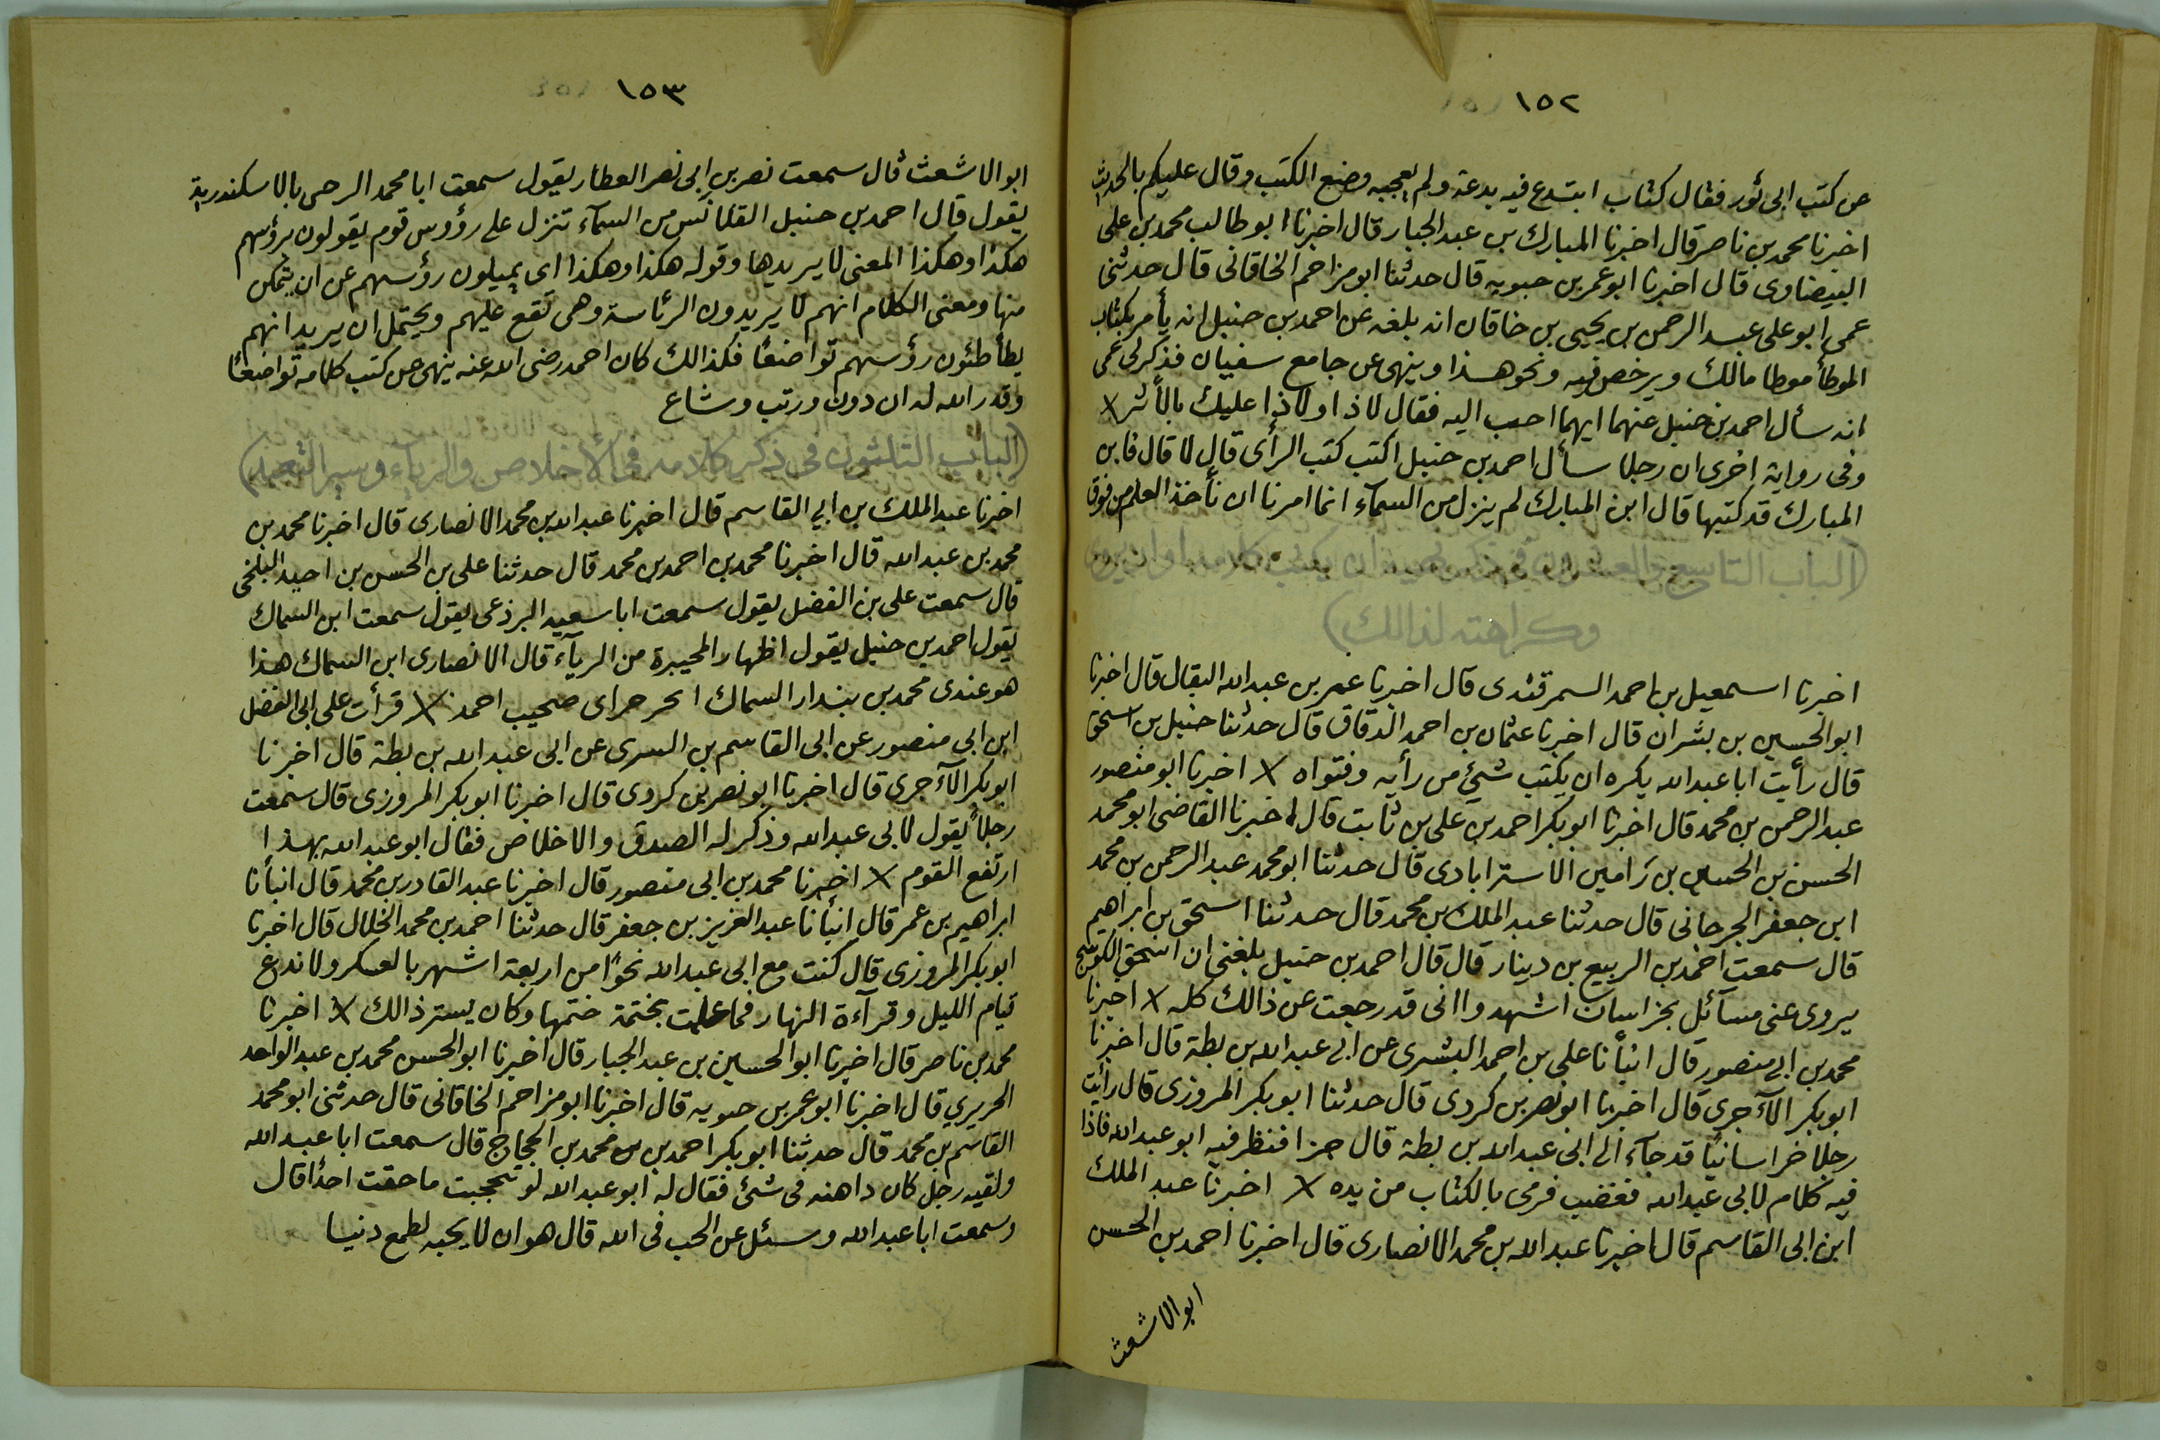 ١٥٢
من كتب ابى ثور فقال كتاب ابتدع فيه بدعة ولم يعجبه وضع الكتب وقال عليكم بالحديث
اخبرنا محمد بن ناصر قال اخبرنا المبارك بن عبد الجبار قال اخبرنا ابو طالب محمد بن على
البيضاوى قال اخبرنا ابو عمر بن حيويه قال حدثنا ابو مزاحم الخاقانى قال حدثنى
عمى ابو على عبد الرحمن بن يحيى بن خاقان انه بلغه عن احمد بن حنبل انه يأمر بكتاب
الموطأ موطا مالك ويرخص فيه ونحو هذا وينهى عن جامع سفيان فذكر لى عمى
انه سأل احمد بن حنبل عنهما ايهما احب اليه فقال لاذا ولاذا عليك بالأثر X
وفى رواية اخرى ان رجلا سأل احمد بن حنبل اكتب كتب الرأى قال لا قال فابن
المبارك قد كتبها قال ابن المبارك لم ينزل من السمآء انما امرنا ان نأخذ العلم من فوق
(الباب التاسع والعشرون فى
وكراهته لذالك)
اخبرنا اسمعيل بن احمد السمرقندى قال اخبرنا عمر بن عبد الله البقال قال اخبرنا
ابو الحسين بن بشران قال اخبرنا عثمان بن احمد الدقاق قال حدثنا حنبل بن اسحق
قال رأيت ابا عبد الله يكره ان يكتب شيئ من رأيه وفتواه X اخبرنا ابو منصور
عبد الرحمن بن محمد قال اخبرنا ابو بكر احمد بن على بن ثابت قال اخبرنا القاضى ابو محمد
الحسن بن الحسين بن رَامين الاسترابادى قال حدثنا ابو محمد عبد الرحمن بن محمد
ابن جعفر الجرجانى قال حدثنا عبد الملك بن محمد قال حدثنا اسحق بن ابراهيم
قال سمعت احمد بن الربيع بن دينار قال قال احمد بن حنبل بلغنى ان اسحق الكوسج
يروى عنى مسآئل بخراسان اشهدوا انى قد رجعت عن ذالك كله X اخبرنا
محمد بن ابى منصور قال انبأنا على بن احمد البسرى عن ابى عبد الله بن بطة قال اخبرنا
ابو بكر الآجرى قال اخبرنا ابو نصر بن كردى قال حدثنا ابو بكر المروزى قال رأيت
رجلا خراسانيًا قد جآء الى ابى عبد الله بن بطة قال جزا فنظر فيه ابو عبد الله فاذا
فيه كلام لابى عبد الله فغضب فرمى بالكتاب من يده X اخبرنا عبد الملك
ابن ابى القاسم قال اخبرنا عبد الله بن محمد الانصارى قال اخبرنا احمد بن الحسن
ابو الاشعث
١٥٣
ابو الاشعث قال سمعت نصر بن ابى نصر العطار يقول سمعت ابا محمد الرحى بالاسكندرية
يقول قال احمد بن حنبل القلانس من السمآء تنزل على رؤوس قوم يقولون برؤسهم
هكذا وهكذا المعنى لا يريدها وقوله هكذا وهكذا اى يميلون رؤسهم عن ان يتمكن
منها ومعنى الكلام انهم لا يريدون الرئاسة وهى تقع عليهم ويحتمل ان يريد انهم
يطأطئون رؤسهم تواضعًا فكذالك كان احمد رضى الله عنه ينهى عن كتب كلامه تواضعًا
وقدر الله له ان دون ورتب وشاع
(الباب الثلثون فى ذكر كلامه فى الأخلاص والرياء وستر التعبد)
اخبرنا عبد الملك بن ابى القاسم قال اخبرنا عبد الله بن محمد الانصارى قال اخبرنا محمد بن
محمد بن عبد الله قال اخبرنا محمد بن احمد بن محمد قال حدثنا على بن الحسن بن احيد البلخى
قال سمعت على بن الفضل يقول سمعت ابا سعيد البرذعى يقول سمعت ابن السماك
يقول احمد بن حنبل يقول اظهار المحبرة من الريآء قال الانصارى ابن السماك هذا
هو عندى محمد بن بندار السماك صحيب احمد X قرأت على ابى الفضل
ابن ابى منصور عن ابى القاسم بن السرى عن ابى عبد الله بن بطة قال اخبرنا
ابو بكر الآجرى قال اخبرنا ابو نصر بن كردى قال اخبرنا ابو بكر المروزى قال سمعت
رجلاً يقول لابى عبد الله وذكر له الصدق والاخلاص فقال ابو عبد الله بهذا
ارتفع القوم X اخبرنا محمد بن ابى منصور قال اخبرنا عبد القادر بن محمد قال انبأنا
ابراهيم بن عمر قال انبأنا عبد العزيز بن جعفر قال حدثنا احمد بن محمد الخلال قال اخبرنا
ابو بكر المروزى قال كنت مع ابى عبد الله نحوًا من اربعة اشهر بالعسكر ولا ندع
قيام الليل وقرآءة النهار فما علمت بختمة ختمها وكان يستر ذالك X اخبرنا
محمد بن ناصر قال اخبرنا ابو الحسين بن عبد الجبار قال اخبرنا ابو الحسن محمد بن عبد الواحد
الحريري قال اخبرنا ابو عمر بن حيويه قال اخبرنا ابو مزاحم الخاقانى قال حدثنى ابو محمد
القاسم بن محمد قال حدثنا ابو بكر احمد بن محمد بن الحجاج قال سمعت ابا عبد الله
ولقيه رجل كان داهنه فى شئ فقال له ابو عبد الله لو احدًا قال
وسمعت ابا عبد الله وسئل عن الحب فى الله قال هو ان لا يحبه لطمع دنيا